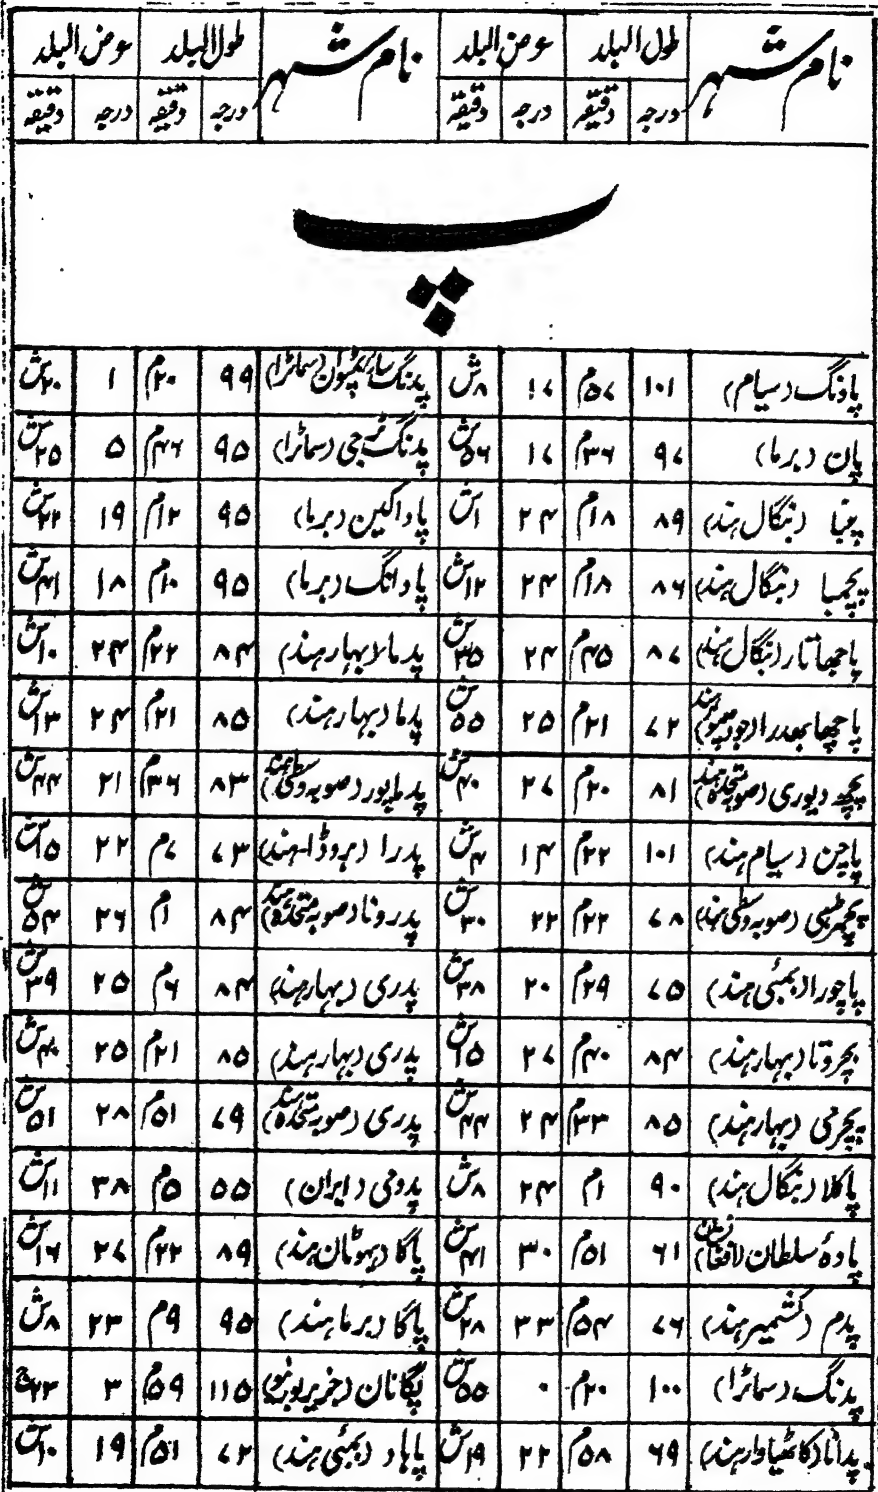 نام شہر | طول البلد | عرض البلد | نام شہر | طول البلد | عرض البلد
درجہ | دقیقہ | درجہ | دقیقہ | درجہ | دقیقہ | درجہ | دقیقہ
پ
پاونگ (سیام) | ۱۰۱ | ۵۷م | ۱۷ | ۸ش | پدنگ (سماٹرا) | ۹۹ | ۲۰م | ۱ | ۲۰ش
پان (برما) | ۹۷ | ۳۶م | ۱۷ | ۵۶ش | پدنگ ٹرجی (سماٹرا) | ۹۵ | ۴۶م | ۵ | ۲۵ش
پبنا (بنگال ہند) | ۸۹ | ۱۸م | ۲۴ | ۱ش | پاداکین (برما) | ۹۵ | ۱۲م | ۱۹ | ۲۲ش
پچمبا (بنگال ہند) | ۸۶ | ۱۸م | ۲۴ | ۱۲ش | پادانگ (برما) | ۹۵ | ۱۰م | ۱۸ | ۴۱ش
پاجھاتار (بنگال ہند) | ۸۷ | ۴۵م | ۲۴ | ۳۵ش | پدمالا (بہار ہند) | ۸۴ | ۲۲م | ۲۴ | ۱۰ش
پاچھا بھدرا (جودھپور ہند) | ۷۲ | ۲۱م | ۲۵ | ۵۵ش | پدما (بہار ہند) | ۸۵ | ۲۱م | ۲۴ | ۱۳ش
پچھ دیوری (صوبہ متحدہ ہند) | ۸۱ | ۲۰م | ۲۷ | ۴۰ش | پدماپور (صوبہ وسطی ہند) | ۸۳ | ۳۶م | ۲۱ | ۴۴ش
پاچن (سیام ہند) | ۱۰۱ | ۲۲م | ۱۴ | ۴ش | پدرا (بروڈا ہند) | ۷۳ | ۷م | ۲۲ | ۱۵ش
پچمڑھی (صوبہ وسطی ہند) | ۷۸ | ۲۲م | ۲۲ | ۳۰ش | پدرونا (صوبہ متحدہ ہند) | ۸۴ | ۱م | ۲۶ | ۵۴ش
پاچورا (بمبئی ہند) | ۷۵ | ۲۹م | ۲۰ | ۳۸ش | پدری (بہار ہند) | ۸۴ | ۶م | ۲۵ | ۳۹ش
پچروتا (بہار ہند) | ۸۴ | ۴۰م | ۲۷ | ۱۵ش | پدری (بہار ہند) | ۸۵ | ۲۱م | ۲۵ | ۴۰ش
پچرخی (بہار ہند) | ۸۵ | ۳۳م | ۲۴ | ۴۴ش | پدری (صوبہ متحدہ ہند) | ۷۹ | ۵۱م | ۲۸ | ۵۱ش
پاکلا (بنگال ہند) | ۹۰ | ۱م | ۲۴ | ۸ش | پدومی (ایران) | ۵۵ | ۵م | ۳۸ | ۱۱ش
پادۂ سلطان (افغانستان) | ۶۱ | ۵۱م | ۳۰ | ۴۱ش | پاگا (بھوٹان ہند) | ۸۹ | ۲۲م | ۲۷ | ۱۶ش
پدم (کشمیر ہند) | ۷۶ | ۵۴م | ۳۳ | ۲۸ش | پاگا (برما ہند) | ۹۵ | ۹م | ۲۳ | ۸ش
پدنگ (سماٹرا) | ۱۰۰ | ۲۰م | ۰ | ۵۵ش | پگانان (جزیر بورنیو) | ۱۱۵ | ۵۹م | ۳ | ۲۳ج
پدانا (کاٹھیاوار ہند) | ۶۹ | ۵۸م | ۲۲ | ۱۹ش | پاہاد (بمبئی ہند) | ۷۲ | ۵۱م | ۱۹ | ۱۰ش